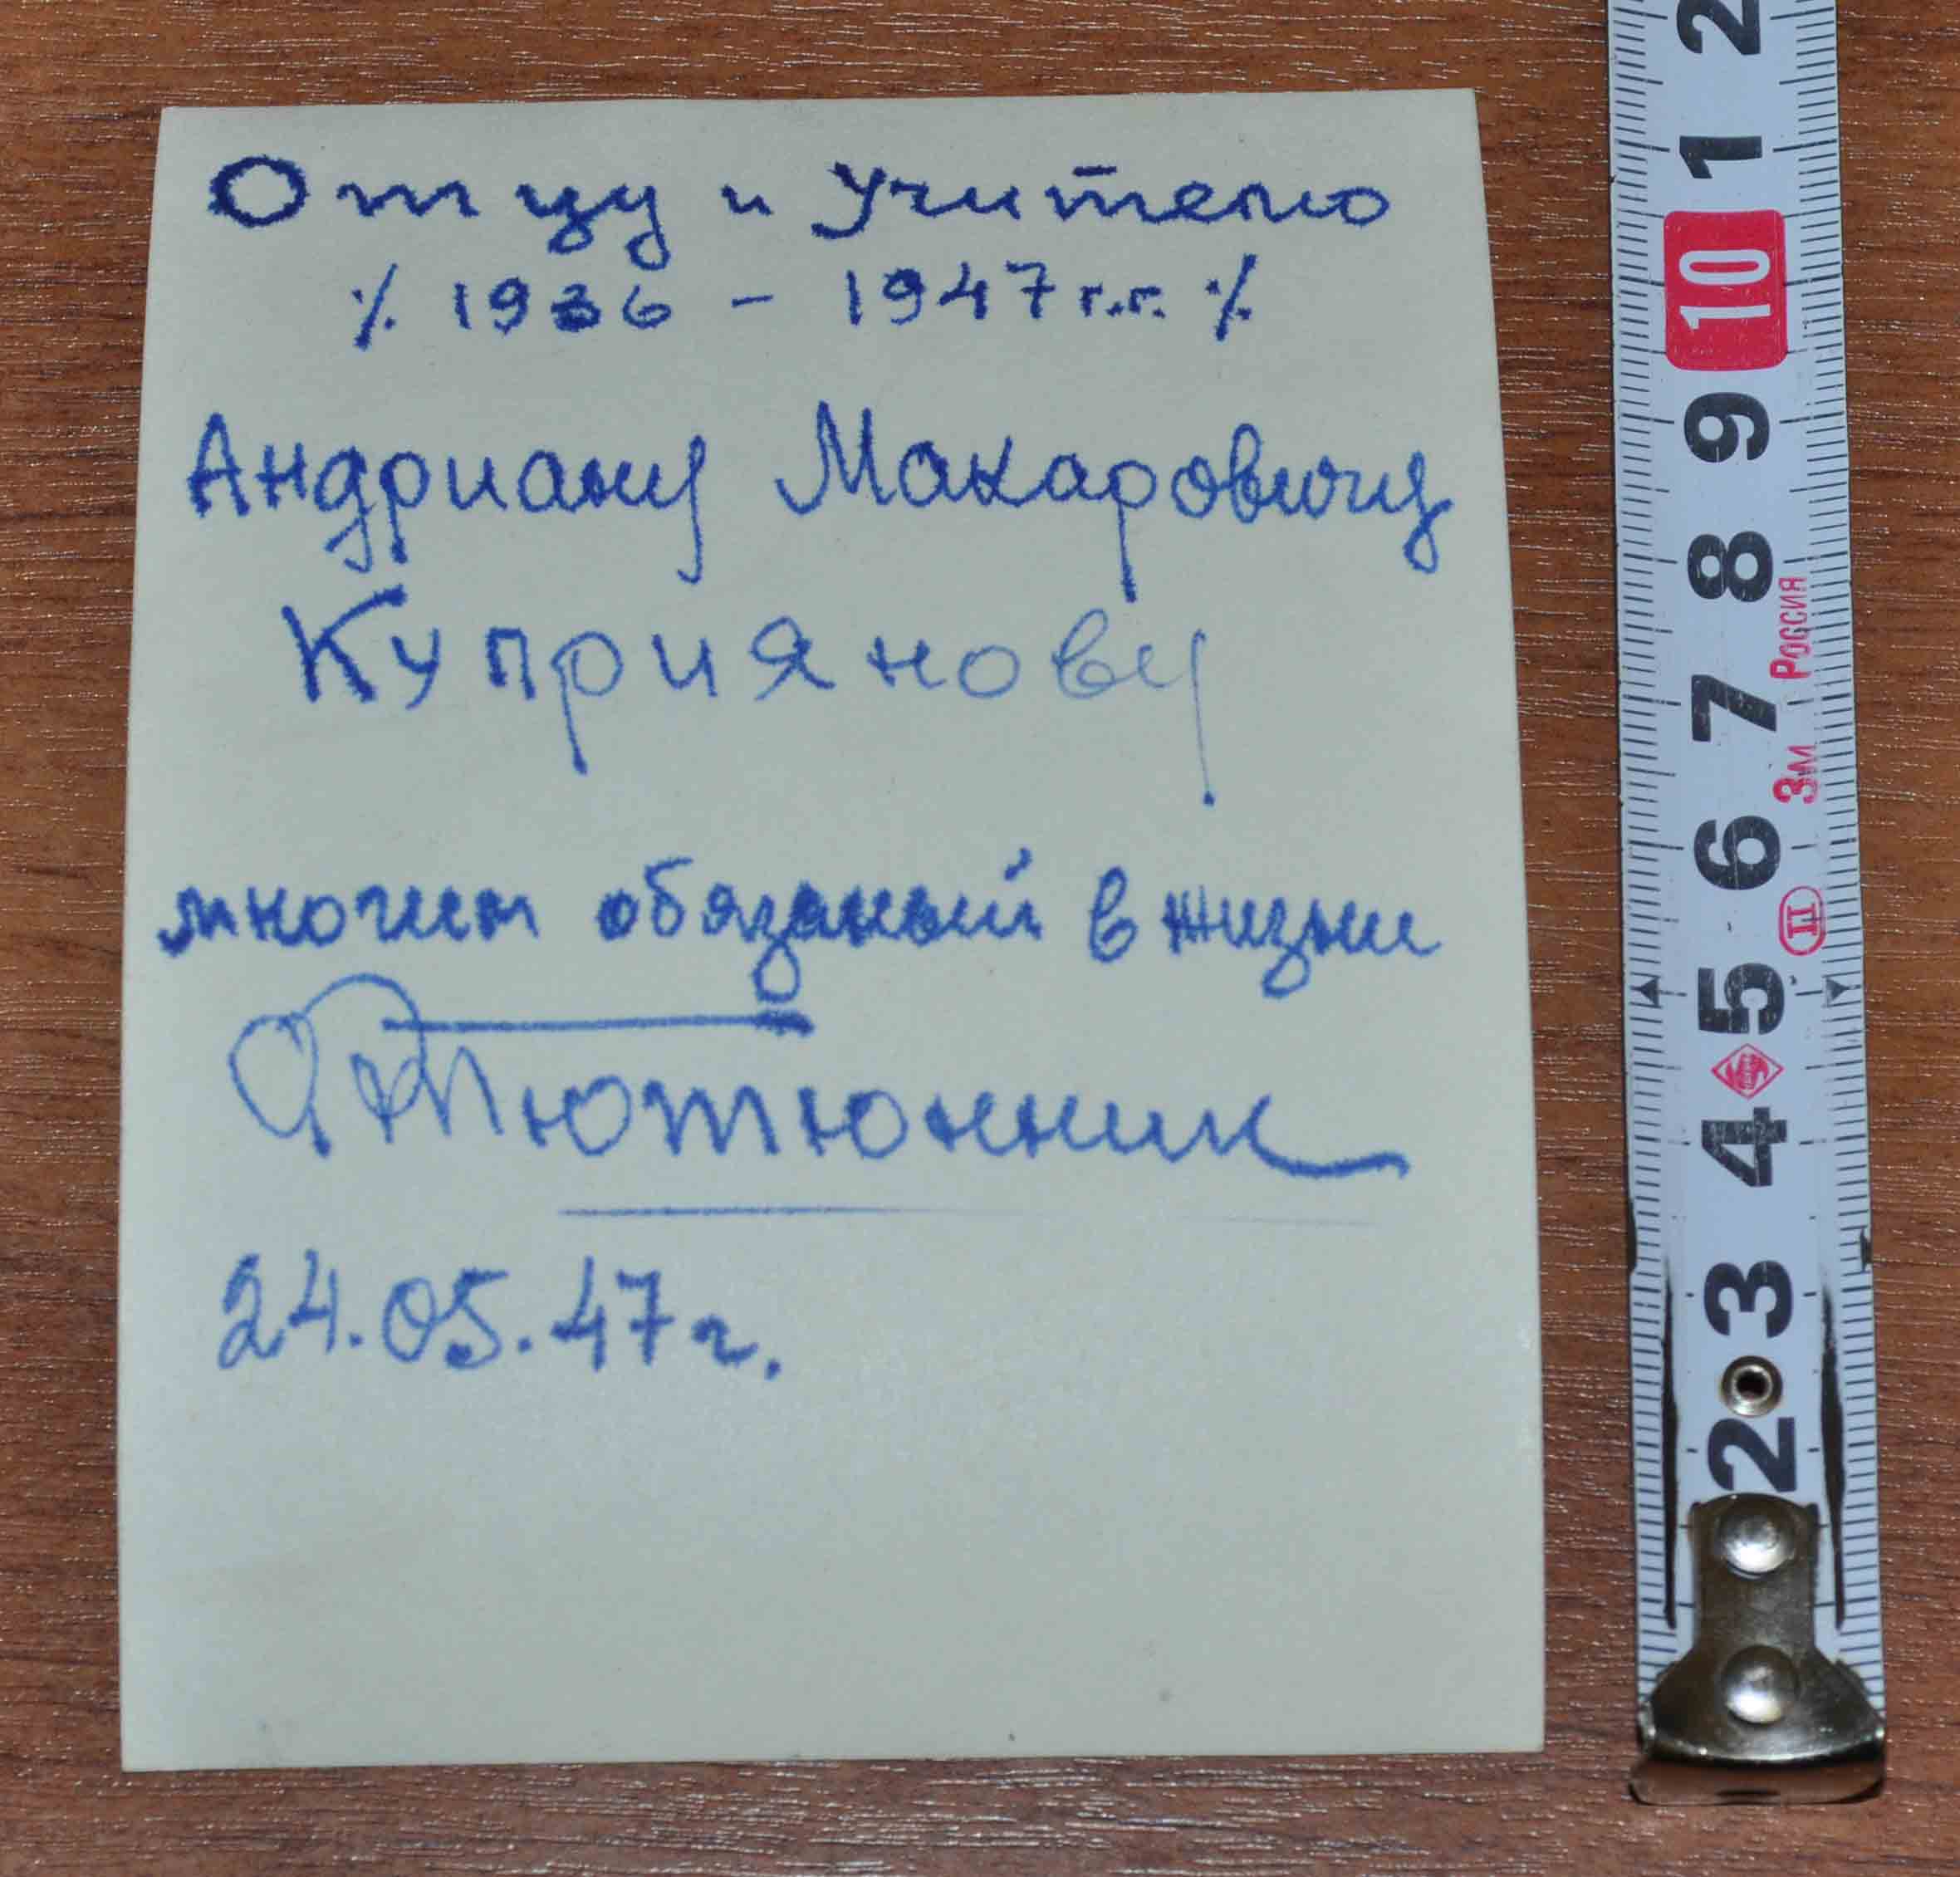 Отцу и Учителю
٪ 1936 - 1947 г.г. ٪
Андриану Макаровичу
Куприянову
многим обязаный в жизни
Тютюнник
24.05.47 г.
2
1
10
9
8
7
6
5
4
3
2
Россия
3м
II